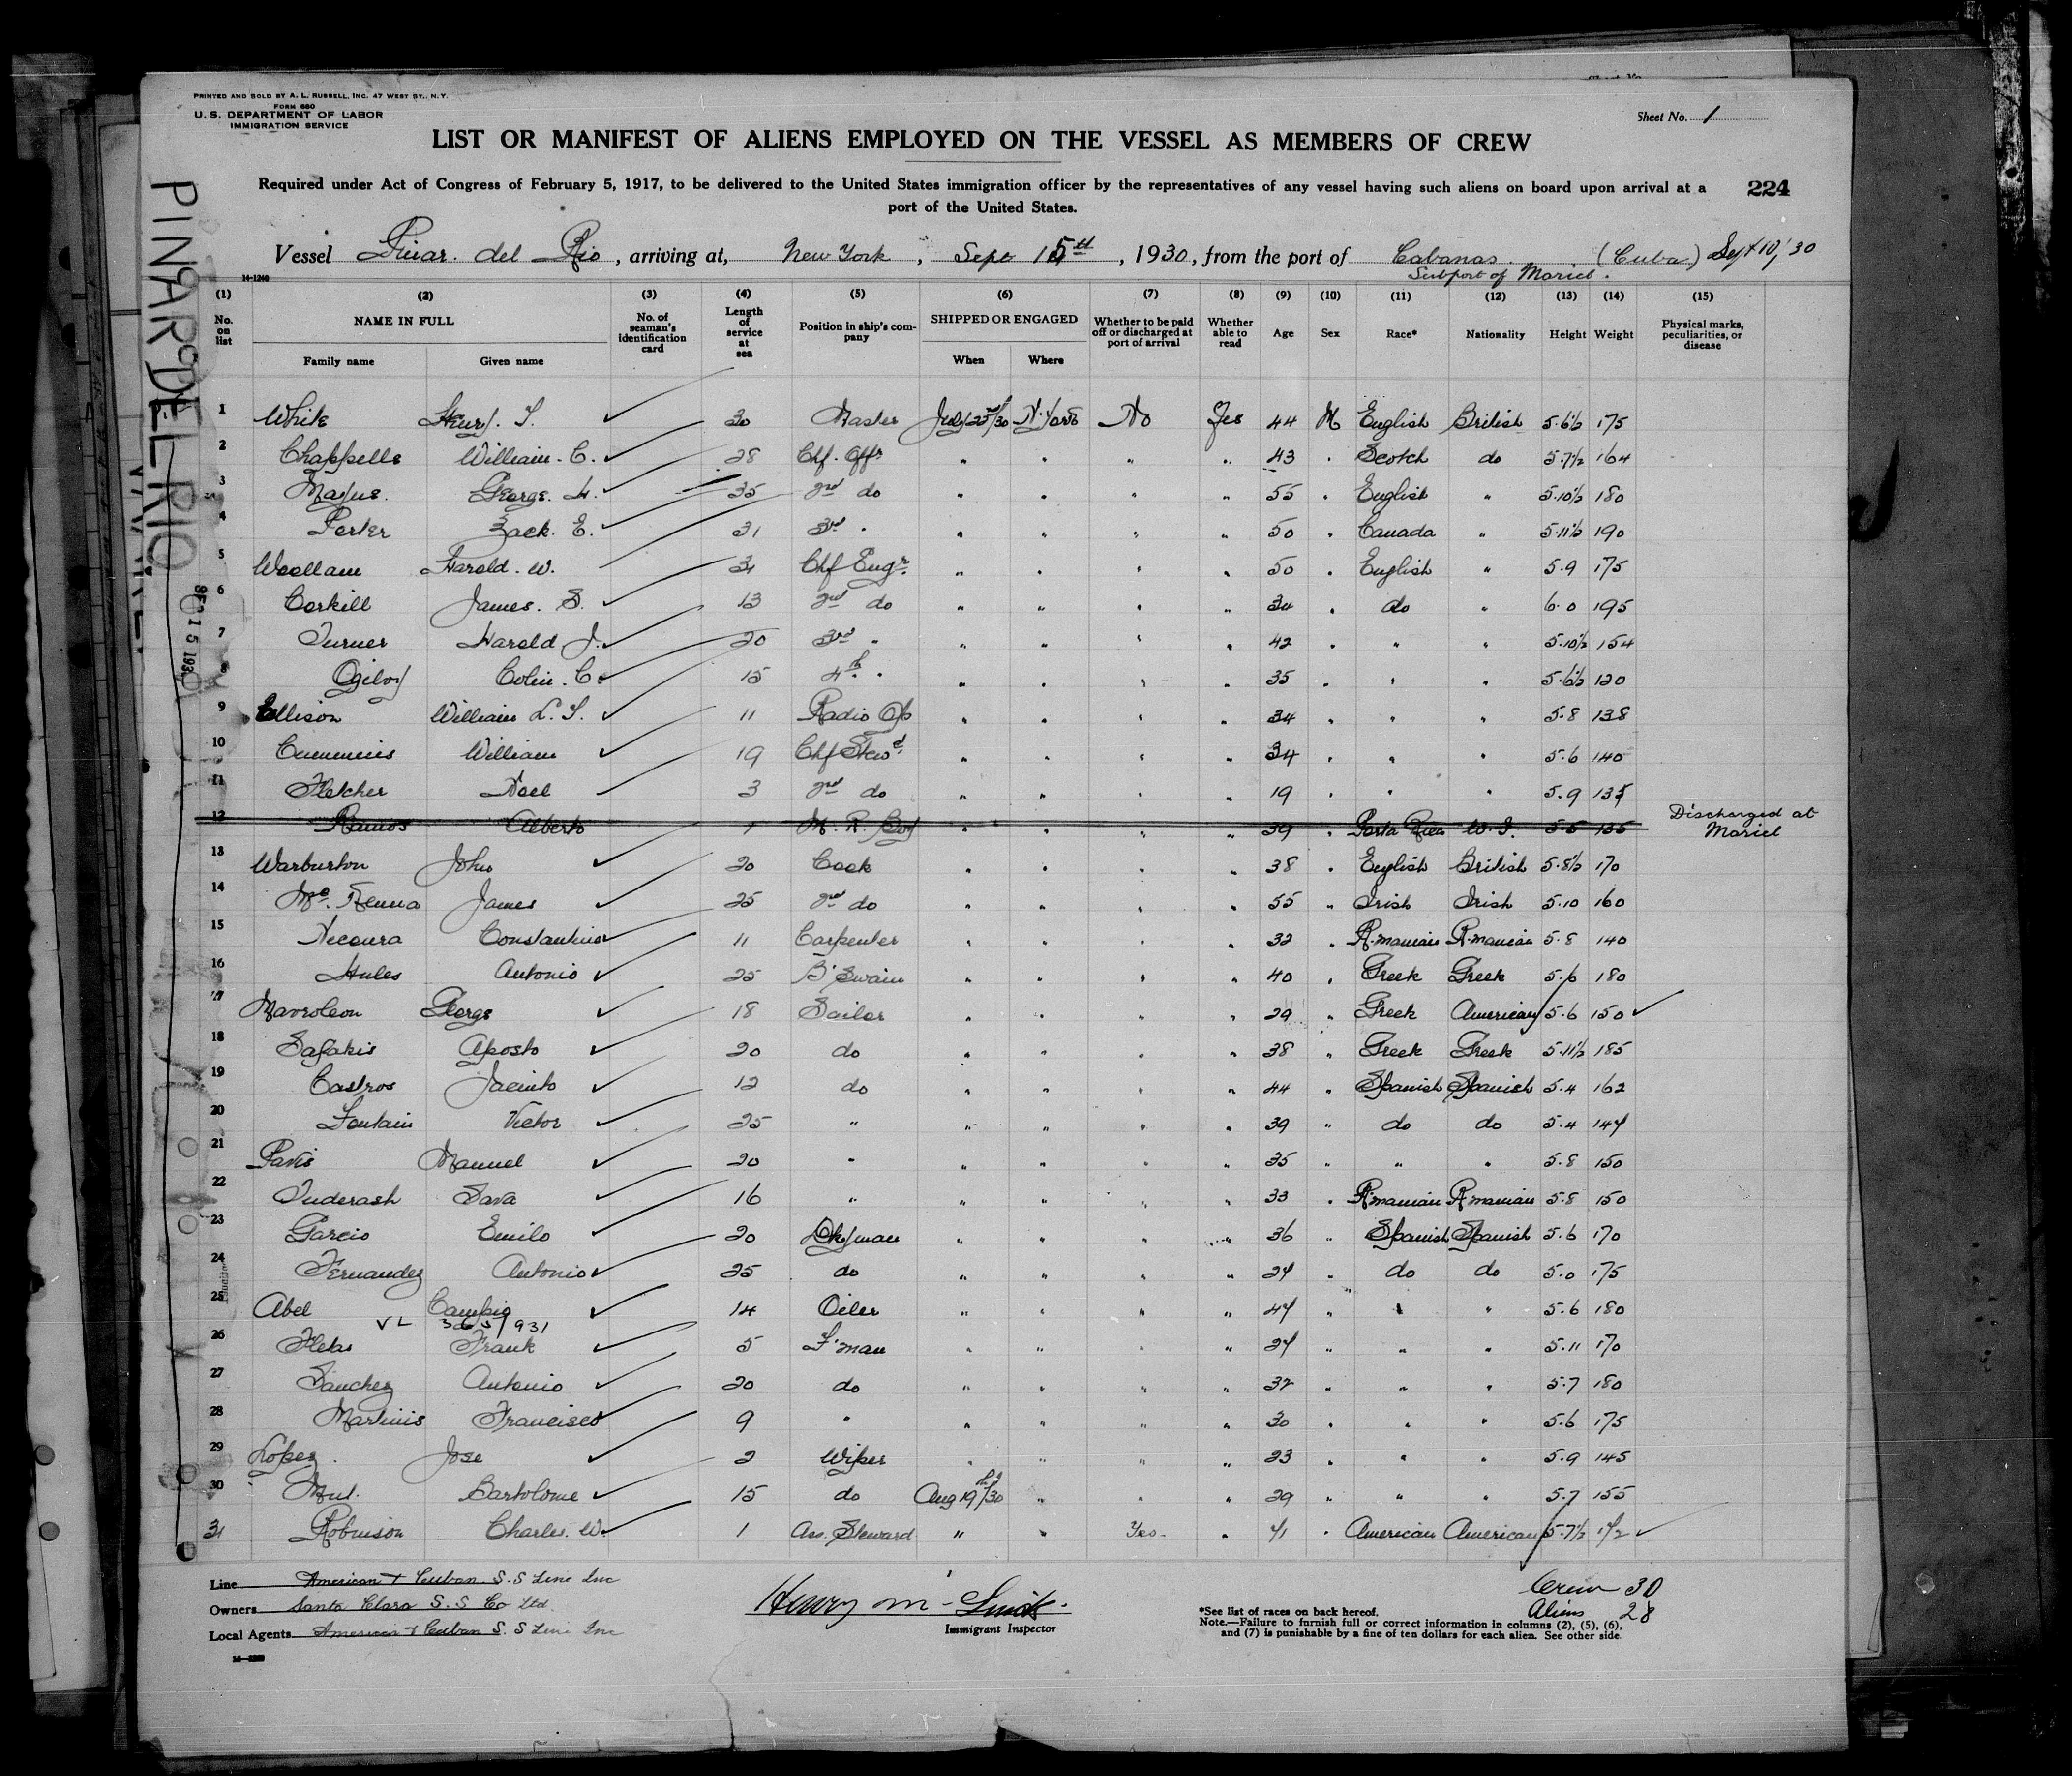 PRINTED AND SOLD BY A. L. RUSSELL, INC. 47 WEST ST., N.Y.
FORM 680
U. S. DEPARTMENT OF LABOR
IMMIGRATION SERVICE
Sheet No. 1
LIST OR MANIFEST OF ALIENS EMPLOYED ON THE VESSEL AS MEMBERS OF CREW
Required under Act of Congress of February 5, 1917, to be delivered to the United States immigration officer by the representatives of any vessel having such aliens on board upon arrival at a
port of the United States.
224
Vessel Pinar del Rio, arriving at, New York, Sept 15th, 1930, from the port of Cabanas (Cuba) Sept 10, '30
Subport of Mariel.
14-1240
PINAR DEL RIO
SEP 15 1930
(1) (2) (3) (4) (5) (6) (7) (8) (9) (10) (11) (12) (13) (14) (15)
No. on list NAME IN FULL No. of seaman's identification card Length of service at sea Position in ship's company SHIPPED OR ENGAGED Whether to be paid off or discharged at port of arrival Whether able to read Age Sex Race* Nationality Height Weight Physical marks, peculiarities, or disease
Family name Given name When Where
1 White Henry. T. 30 Master July 22nd/30 N. York No Yes 44 M English British 5.6½ 175
2 Chappelle William. C. 28 Chf. Offr " " " " 43 " Scotch do 5.7½ 164
3 George. H. 35 2nd do " " " " 55 " English " 5.10½ 180
4 Porter Zack. E. 31 3rd " " " " " 50 " Canada " 5.11½ 190
5 Woollam Harold. W. 31 Chf Engr. " " " " 50 " English " 5.9 175
6 Corkill James. S. 13 2nd do " " " " 34 " do " 6.0 195
7 Turner Harold J. 20 3rd " " " " " 42 " " " 5.10½ 154
8 Ogilvy Colin. C. 15 4th " " " " " 35 " " " 5.6½ 120
9 Ellison William L. T. 11 Radio Op " " " " 34 " " " 5.8 138
10 Cummins William 19 Chf Stewd " " " " 34 " " " 5.6 140
11 Fletcher Noel 3 2nd do " " " " 19 " " " 5.9 135
12 Ramos Alberto 1 M. R. Boy " " " " 39 " Porto Rico W. I. 5.5 135 Discharged at Mariel
13 Warburton John 20 Cook " " " " 38 " English British 5.8½ 170
14 Mc. Kenna James 25 2nd do " " " " 55 " Irish Irish 5.10 160
15 Necoura Constantino 11 Carpenter " " " " 32 " R.manian R.manian 5.8 140
16 Hules Antonio 25 B'Swain " " " " 40 " Greek Greek 5.6 180
17 Mavroleon George 18 Sailor " " " " 29 " Greek American 5.6 150
18 Safakis Aposto 20 do " " " " 38 " Greek Greek 5.11½ 185
19 Castros Jacinto 12 do " " " " 44 " Spanish Spanish 5.4 162
20 Fontain Victor 25 " " " " " 39 " do do 5.4 144
21 Manuel 20 " " " " " 35 " " " 5.8 150
22 Tuderash Sava 16 " " " " " 33 " R.manian R.manian 5.8 150
23 Garcio Emilo 20 Dkyman " " " " 36 " Spanish Spanish 5.6 170
24 Fernandez Antonio 25 do " " " " 24 " do do 5.0 175
25 Abel Campio 14 Oiler " " " " 44 " " " 5.6 180
VL 365/931
26 Frank 5 F'man " " " " 24 " " " 5.11 170
27 Sanchez Antonio 20 do " " " " 32 " " " 5.7 180
28 Martinis Francisco 9 " " " " " 30 " " " 5.6 175
29 Lopez Jose 2 Wiper " " " " 23 " " " 5.9 145
30 Mut. Bartolome 15 do Aug 19th/30 " " " 29 " " " 5.7 155
31 Robinson Charles. W. 1 Ass. Steward " " Yes. " 41 " American American 5.7½ 142
Line American & Cuban S.S Line Inc
Owners Santa Clara S.S Co Ltd.
Local Agents American & Cuban S.S Line Inc
14-1240
Henry M.
Immigrant Inspector
Crew 30
Aliens 28
*See list of races on back hereof.
Note.—Failure to furnish full or correct information in columns (2), (5), (6),
and (7) is punishable by a fine of ten dollars for each alien. See other side.